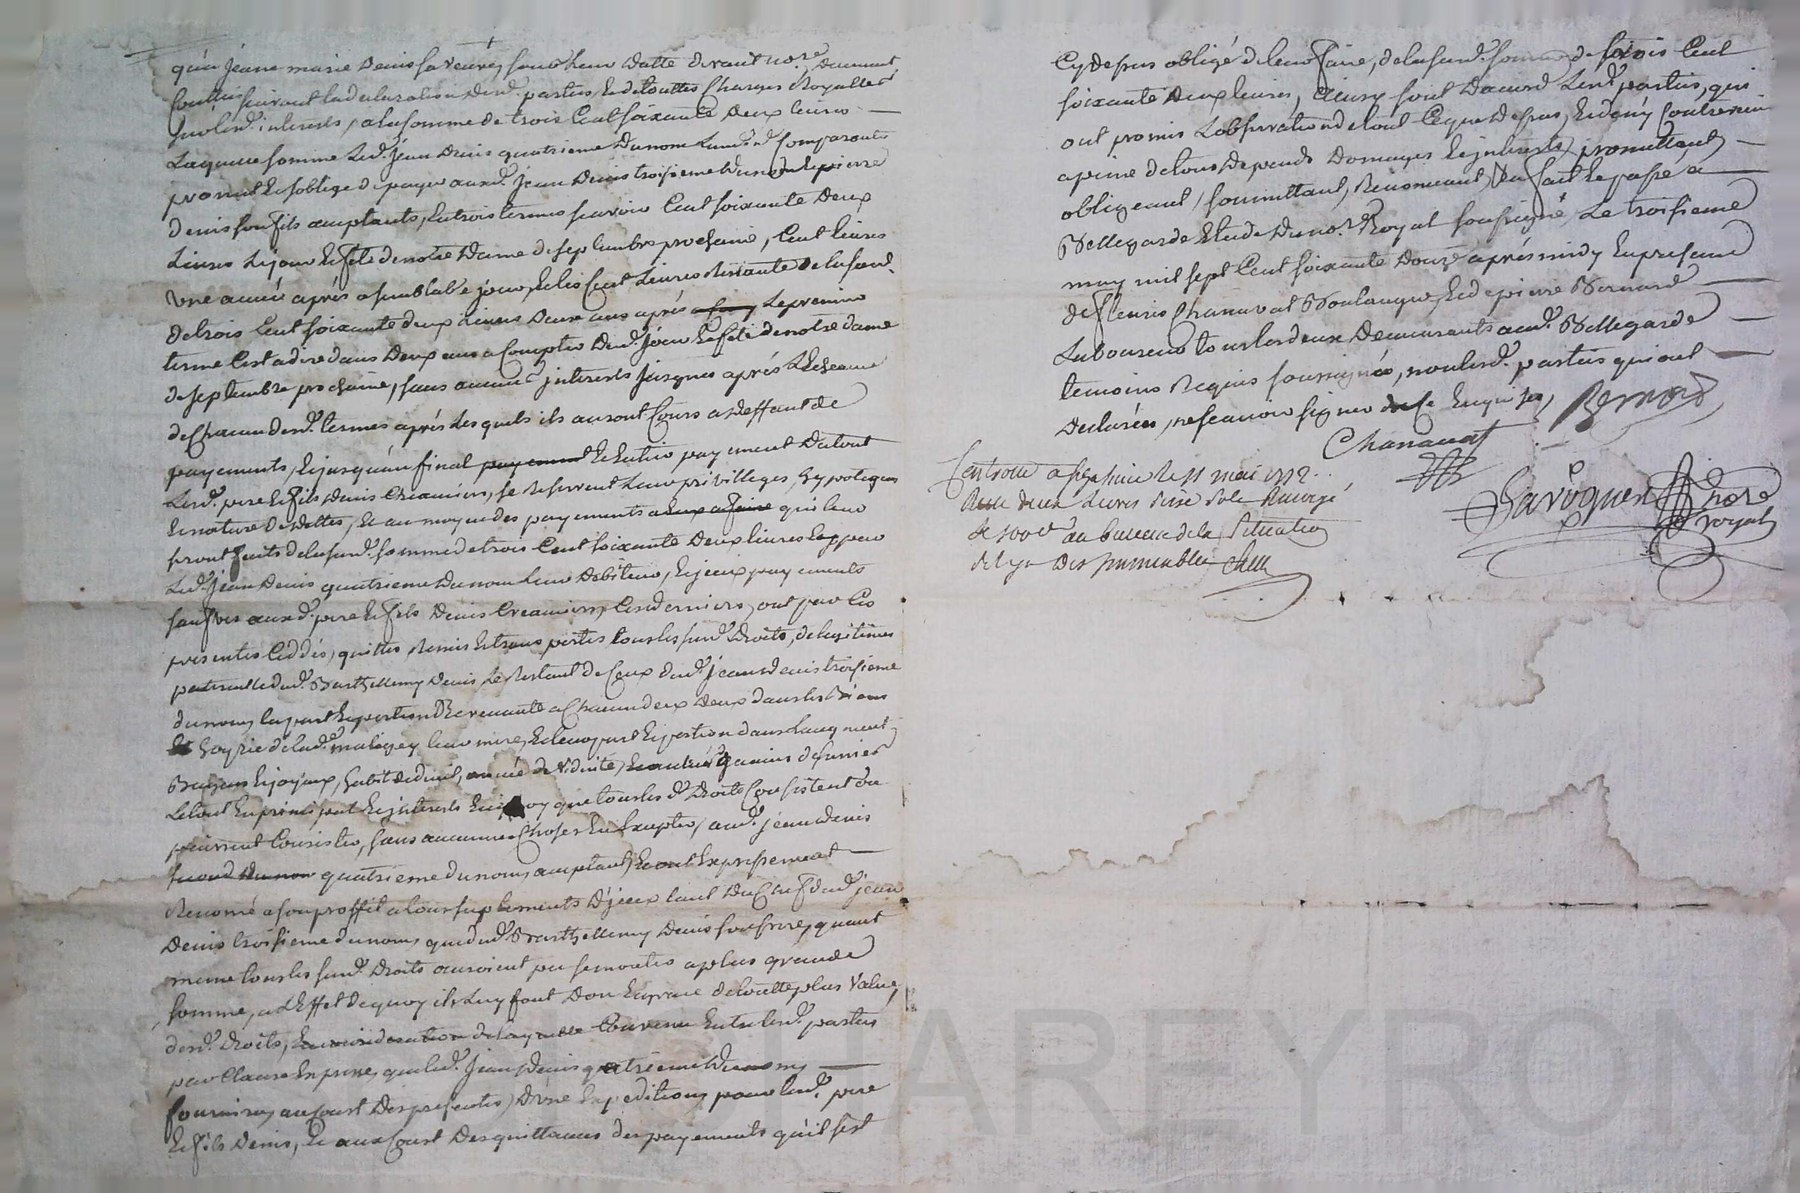 qu'a jeane marie Denis sa veuve, sous leur datte devant no.re
suivant la declaration desd. parties, Et de touttes Charges Royalles
interests, a la somme de trois Cent soixante deux livres
Laquelle somme Led. jean Denis quatrieme du nom Comparant
promet Et s'oblige de payer auxd. jean Denis troisieme du nom Et pierre
Denis son fils acceptants, En trois termes scavoir Cent soixante deux
Livres Le jour Et fete de notre Dame de septembre prochaine, Cent livres
une année aprés a semblable jour, Et les Cent Livres Restante de la susd.
de trois Cent soixante deux Livres deux ans aprés Le premier
terme C'est a dire dans Deux ans a Compter dud. jour Et fete de notre dame
de septembre prochaine, sans aucuns jnterests jusques aprés L'Echeance
de Chacun desd. termes aprés Lesquels ils auront Cours a deffaut de
payements, Et jusqu'au final payement Et Entier payement Du tout
Lesd. pere Et fils Denis Creanciers, se reservent Leur privilleges, hypoteques
Et nature De dettes, Et au moyen des payements a Eux a faire qui leur
seront faits de la susd. somme de trois Cent soixante Deux livres par
Led. jean Denis quatrieme du nom Leur Debiteur, Et jceux payements
sauf vis auxd. pere Et fils Denis Creanciers, Ces derniers, ont par Ces
presentes Ceddés, quittes Remis Et transportes tous les susd. Droits, de legitimes
paternelle dud. Barthellemy Denis Le Restant de Ceux dud. jean denis troisieme
du nom, la part Et portion Revenante a Chacun d'eux Deux dans les Biens
Et hoyrie de lad. leur mere, Et leur part Et portion dans L'augment
Bagues Et joyaux, habit de deuil, année de viduité,
Le tout En principal Et jnterests En quoy que tous les d. Droits Consistent ou
puissent Consister, sans aucunes Choses En Excepter, aud. jean Denis
second du nom quatrieme du nom, acceptant, Et ont Expressement
Renoncé a son proffit a tous suplements D'jceux tant Du Chef dud. jean
Denis troisieme du nom, que dud. Barthellemy Denis son frere, quant
meme tous les susd. Droits auroient pu se monter a plus grande
somme, a L'Effet de quoy ils Luy font Don En prase de toutte plus Value
desd. Droits, Convenu Entre Lesd. parties
par Clause Expresse, que led. Jean Denis quatrieme Du nom
fournira, au Court Des presentes, D'une Expedition, pour lesd. pere
Et fils Denis, Et aux Court Des quittances des payements qu'il s'est
Cy dessus obligé de leur faire, de la susd. somme de trois Cent
soixante Deux livres, sont D'acord Lesd. parties, qui
ont promis L'observation de tout Ce que Dessus, Et d'ny Contrevenir
a peine de tous Depends Domages Et jnterests, promettant
obligeant, soumettant, Renonceant, &a fait Et passé a
Bellegarde Etude Du no.re Royal soussigné, Le troisieme
may mil sept Cent soixante Douze aprés midy En presence
de fleuris Chanavat Boulanger, Et de pierre Bernard
Laboureur tous les deux Demeurants aud. Bellegarde
temoins Requis soussignés, non lesd. parties qui ont
Declarées, ne scavoir signer de Ce Enquises,
Bernard
Chanavat
Lavoguer
no.re
royal
Controllé a le 11 mai 1772.
Reçu deux Livres sols Renvoyé
au bureau de la Situation
Des jmmeubles
CHAREYRON